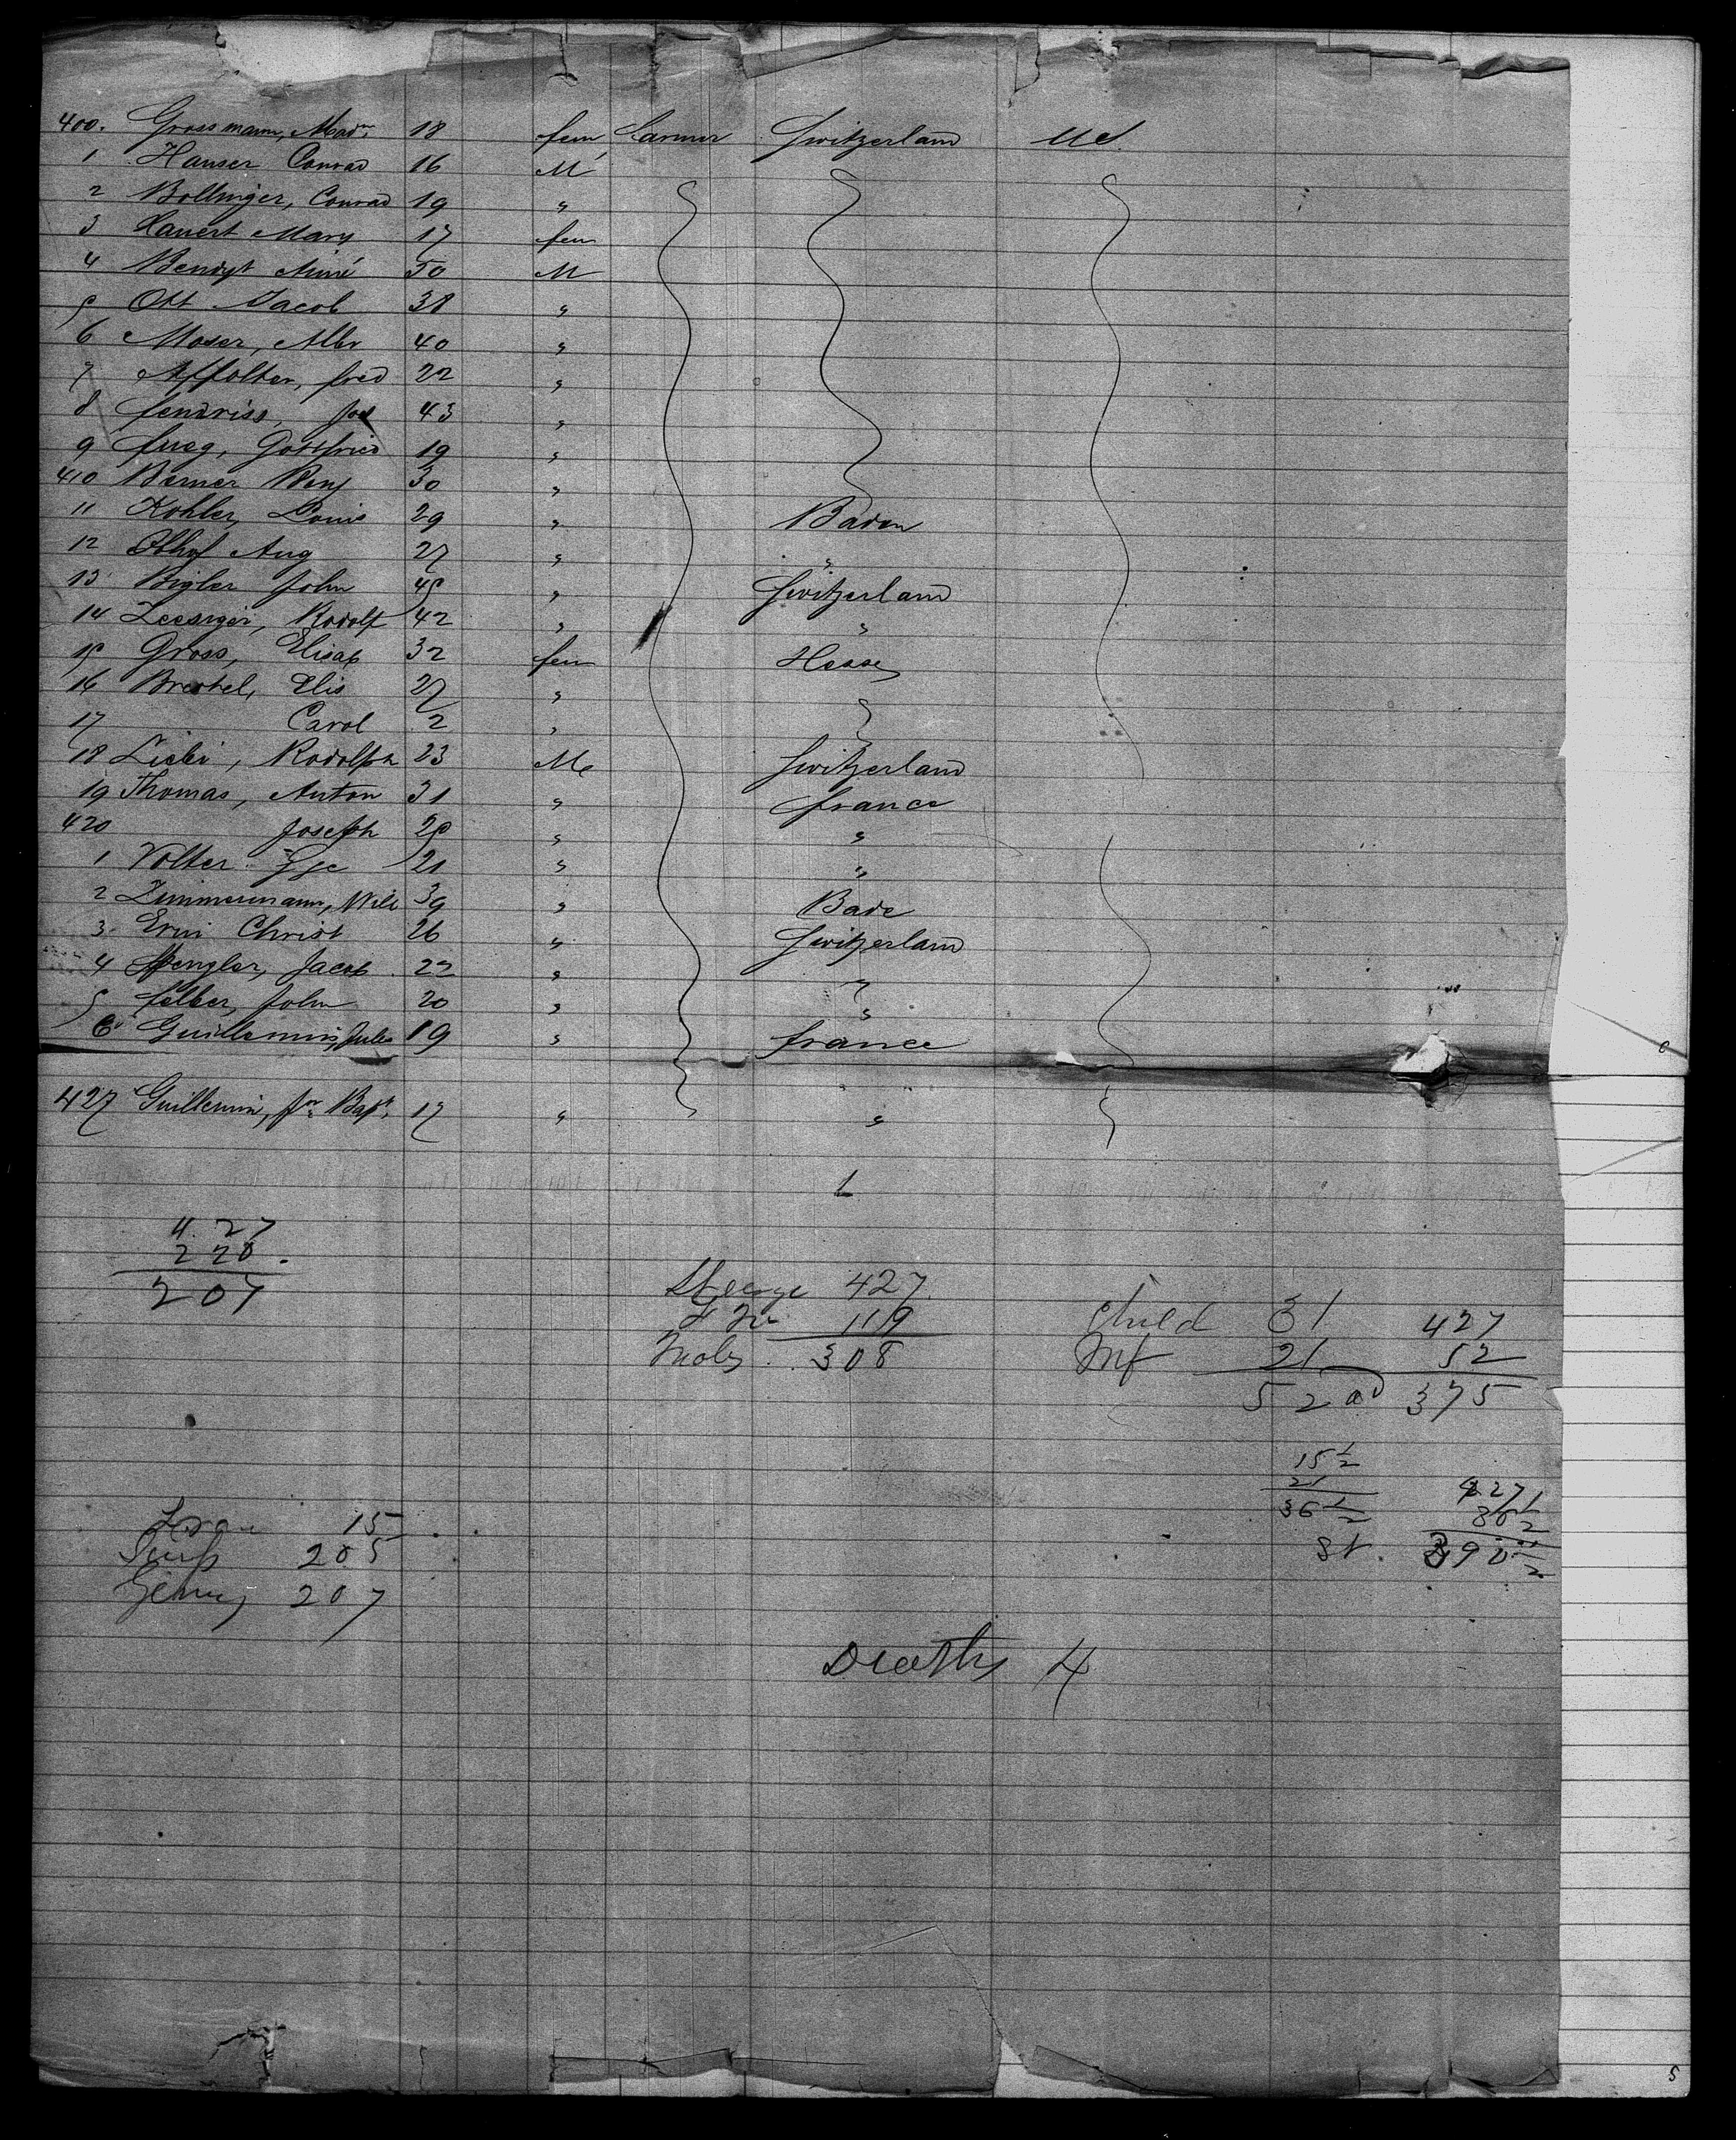 400. Grossmann, Mad 18 fem farmer Switzerland US.
1 Hauser Conrad 16 M
2 Bollinger, Conrad 19 "
3 Mary 17 fem
4 50 M
5 Ott Jacob 38 "
6 Moser, Albr 40 "
7 Affolter, fred 22 "
8 fendriss, Jos 43 "
9 fueg, Gottfried 19 "
410 Berner Benj 30 "
11 Kohler, Louis 29 " Baden
12 Aug 27 " "
13 Bigler John 45 " Switzerland
14 Rodolf 42 " "
15 Gross, Elisab 32 fem Hesse
16 Elis 27 "
17 Carol 2 "
18 Liebi, Rodolph 23 M Switzerland
19 Thomas, Anton 31 " france
420 Joseph 25 " "
1 Volter Gge 21 " "
2 Zimmermann, Will 39 " Bade
3 Erni Christ 26 " Switzerland
4 Spengler, Jacob 22 " "
5 felber, John 20 " "
6 Guillemin, Jules 19 " france
427 Guillemin, Jn Bapt. 17 " "
4 27
220.
207
Steerage 427
119
Males 308
Child 31 427
Inf 21 52
52 ad 375
15 1/2
21
36 1/2
427
36 1/2
390 1/2
15
205
Germ 207
Deaths 4